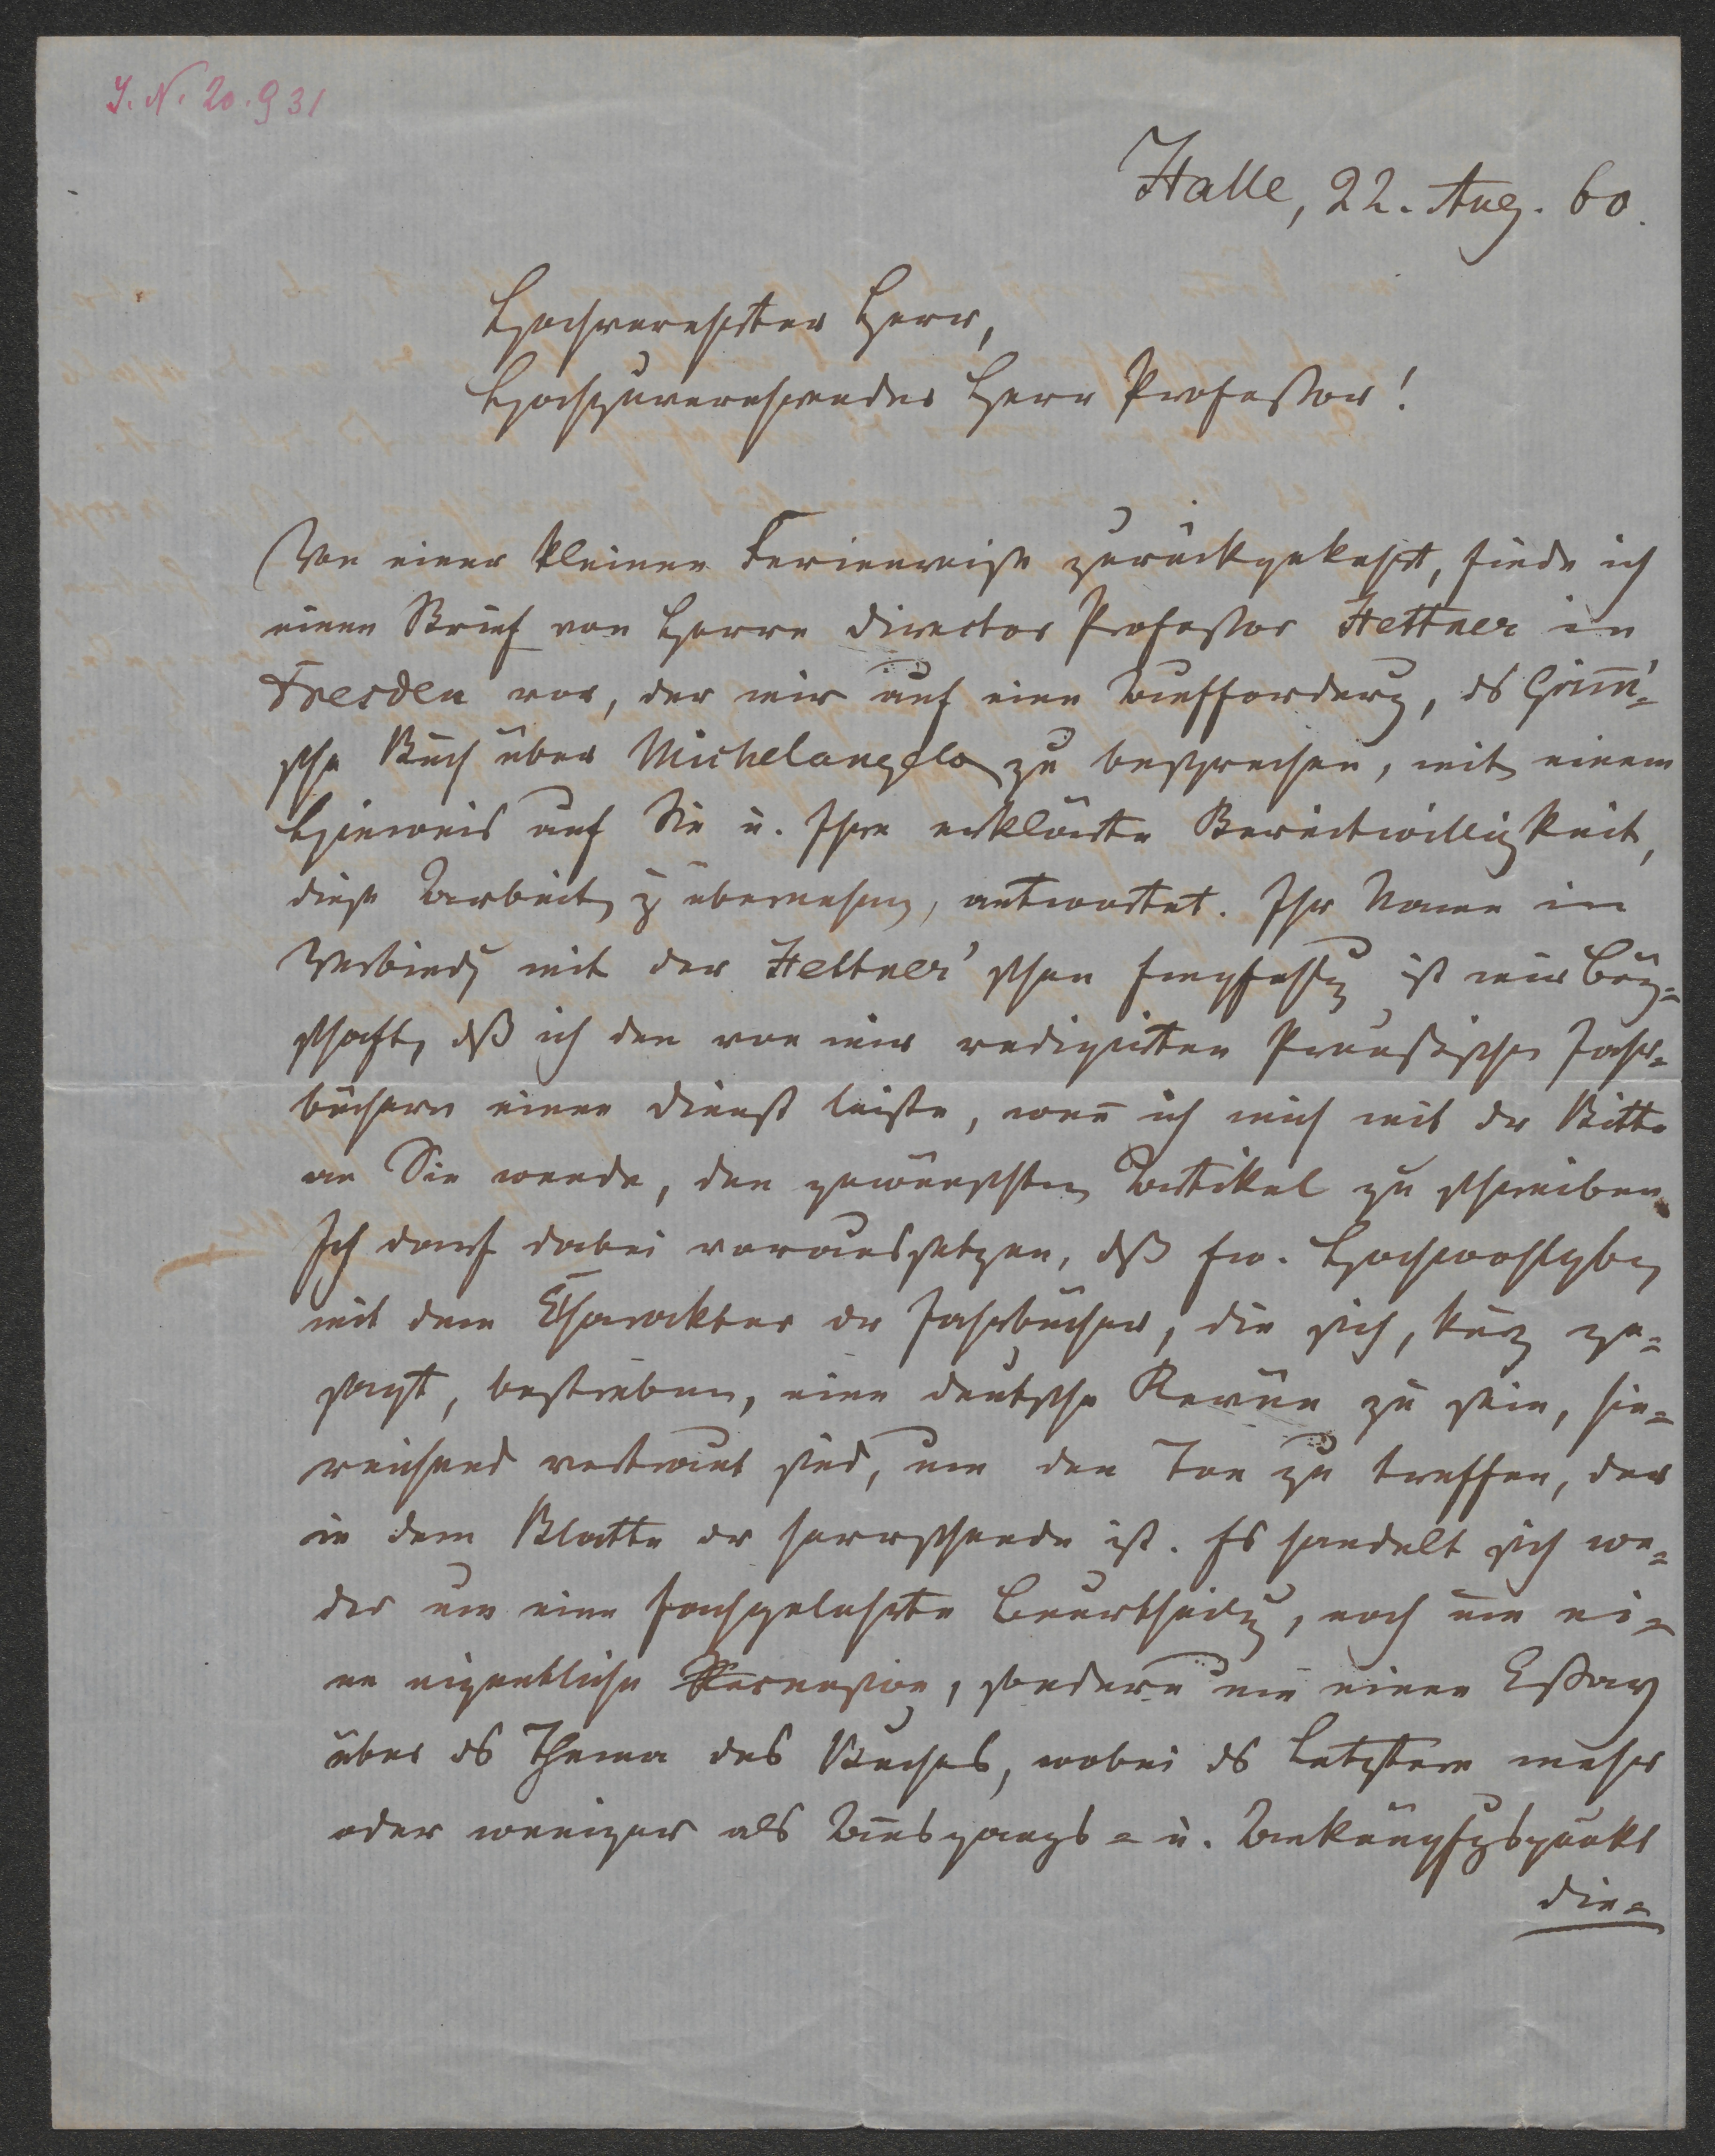 J. N. 20.931
Halle, 22. Aug. 60.
Hochverehrter Herr,
Hochzuverehrender Herr Professor!
Von einer kleinen Ferienreise zurückgekehrt, finde ich
einen Brief von Herrn Director Professor Hettner in
Dresden vor, der mir auf eine Aufforderung, ds Grimm'-
sche Buch über Michelangelo zu besprechen, mit einem
Hinweis auf Sie u. Ihre erklärte Bereitwilligkeit,
diese Arbeit zu übernehmen, antwortet. Ihr Name in
Verbindg mit der Hettner'schen Empfehlg ist mir Bürg-
schaft, dß ich den von mir redigirten Preußischen Jahr-
büchern einen Dienst leiste, wenn ich mich mit der Bitte
an Sie wende, den gewünschten Artikel zu schreiben.
Ich darf dabei voraussetzen, dß Ew. Hochwohlgb
mit dem Charakter der Jahrbücher, die sich, kurz ge-
sagt, bestreben, eine deutsche Revüe zu sein, hin-
reichend vertraut sind, um den Ton zu treffen, der
in dem Blatte der herrschende ist. Es handelt sich we-
der um eine fachgelehrte Beurtheilg, noch um ei-
ne eigentliche Recension, sondern um einen Essay
über ds Thema des Buches, wobei ds Letztere mehr
oder weniger als Ausgangs- u. Anknüpfgspunkt
die-